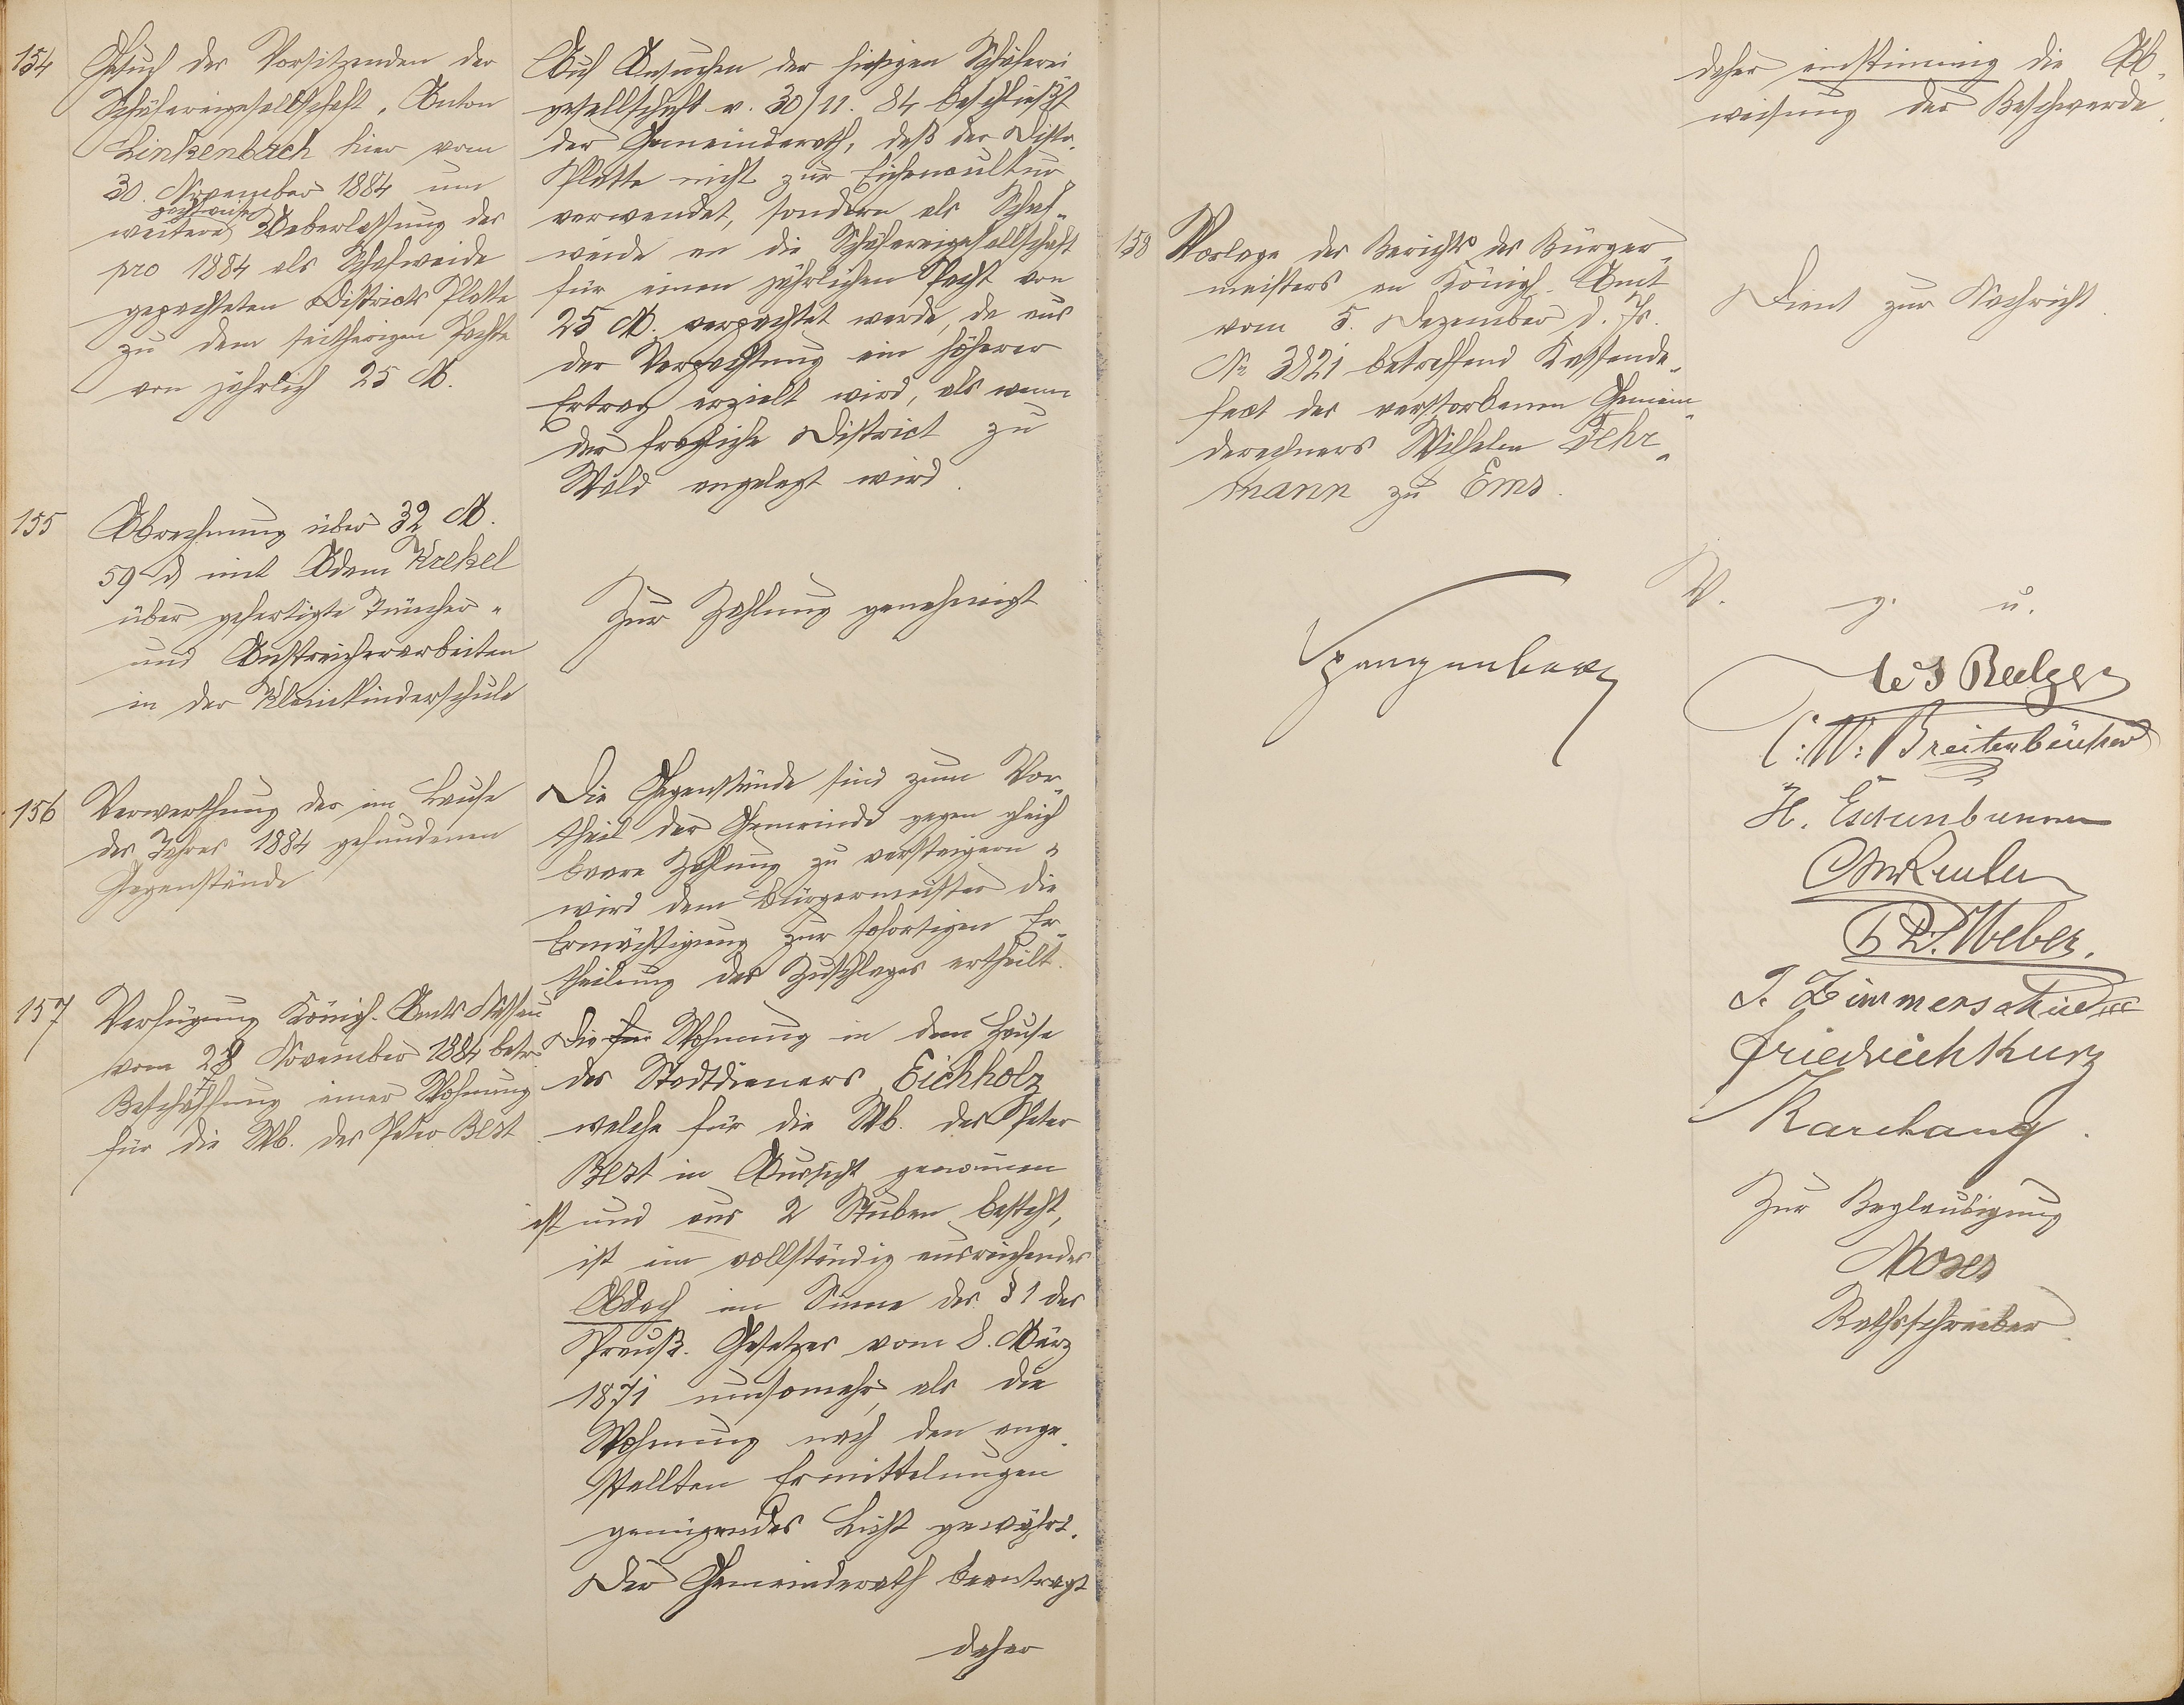 154
Gesuch des Vorsitzenden der
Schäfereigesellschaft, Anton
Linkenbach hier vom
30. November 1884 um
pachtweise
weitere Ueberlassung des
pro 1884 als Schafweide
gepachteten Districts Platte
zu dem seitherigen Pachte
von jährlich 25 M.
Auf Ansuchen der hiesigen Schäferei
gesellschaft v. 30/11. 84 beschließt
der Gemeinderath, daß der Distr.
Platte nicht zur Eichencultur
verwendet, sondern als Schaf-
weide an die Schäfereigesellschaft
für einen jährlichen Pacht von
25 M. verpachtet werde, da aus
der Verpachtung ein höherer
Ertrag erzielt wird, als wenn
der fragliche District zu
Wald angelegt wird.
155
Abrechnung über 32 M.
59 d mit Adam Krekel
über gefertigte Tüncher-
und Anstreicherarbeiten
in der Kleinkinderschule
Zur Zahlung genehmigt
156
Verwerthung der im Laufe
des Jahres 1884 gefundenen
Gegenstände
Die Gegenstände sind zum Vor-
theil der Gemeinde gegen gleich
baare Zahlung zu versteigern u
wird dem Bürgermeister die
Ermächtigung zur sofortigen Er-
theilung des Zuschlages ertheilt.
157
Verfügung Königl. Amts Nassau
vom 28 November 1884 betr.
Beschaffung einer Wohnung
für die Wb. des Peter Best
Die für Wohnung in dem Hause
des Stadtdieners Eichholz
welche für die Wb. des Peter
Best in Aussicht genommen
ist und aus 2 Stuben besteht,
ist ein vollständig ausreichendes
Obdach im Sinne des § 1 des
Preuß. Gesetzes vom 8. März
1871 umsomehr, als die
Wohnung nach den ange-
stellten Ermittelungen
genügendes Licht gewährt.
Der Gemeinderath beantragt
daher
daher einstimmig die Ab-
weisung der Beschwerde.
158
Vorlage des Berichts des Bürger-
meisters an Königl. Amt
vom 5. Dezember d. Js.
No 3821 betreffend Kassende-
fect des verstorbenen Gemein-
derechners Wilhelm Fehr-
mann zu Ems.
Dient zur Nachricht.
V. g. u.
Spangenberg
Balzer
C. W. Breitenbücher
H. Eschenbrenner
Reuter
Weber.
J. Zimmerschied
Friedrich Kurz
Zur Beglaubigung
Moser
Rathsschreiber